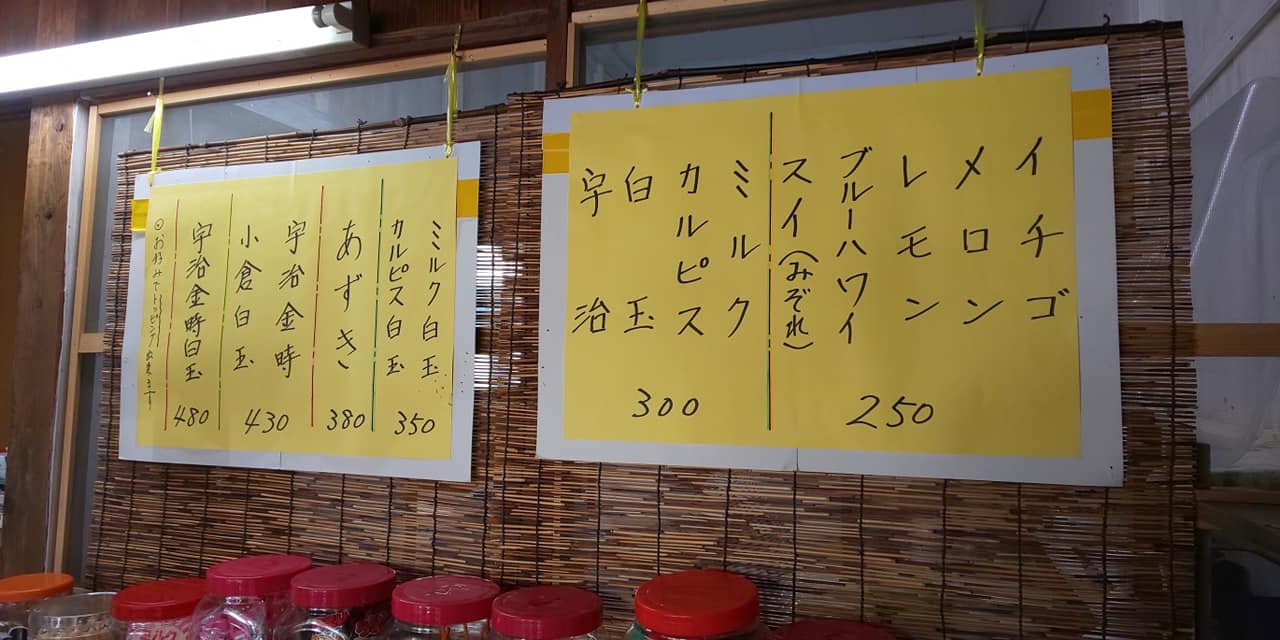 イチゴ
メロン
レモン
ブルーハワイ
スイ(みぞれ)
250
ミルク
カルピス
白玉
宇治
300
ミルク白玉
カルピス白玉
350
あずき
380
宇治金時
小倉白玉
430
宇治金時白玉
480
お好みでトッピング出来ます